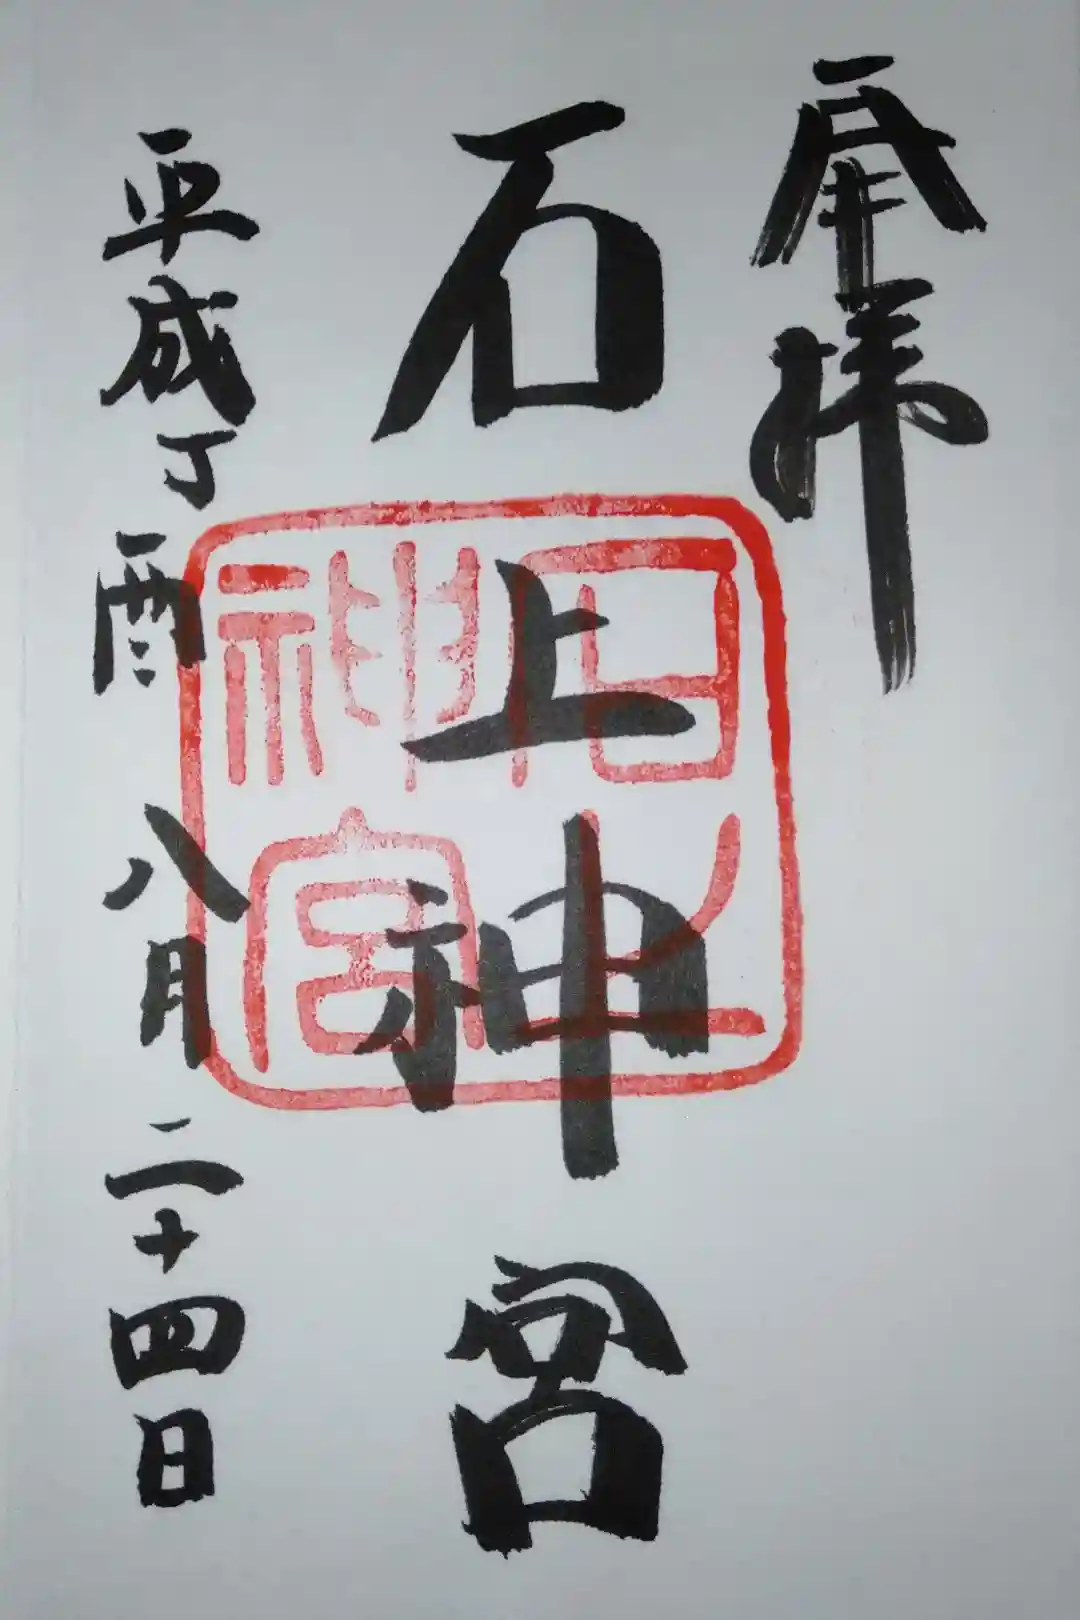 奉拝
石上神宮
平成丁酉 八月二十四日
石上神宮